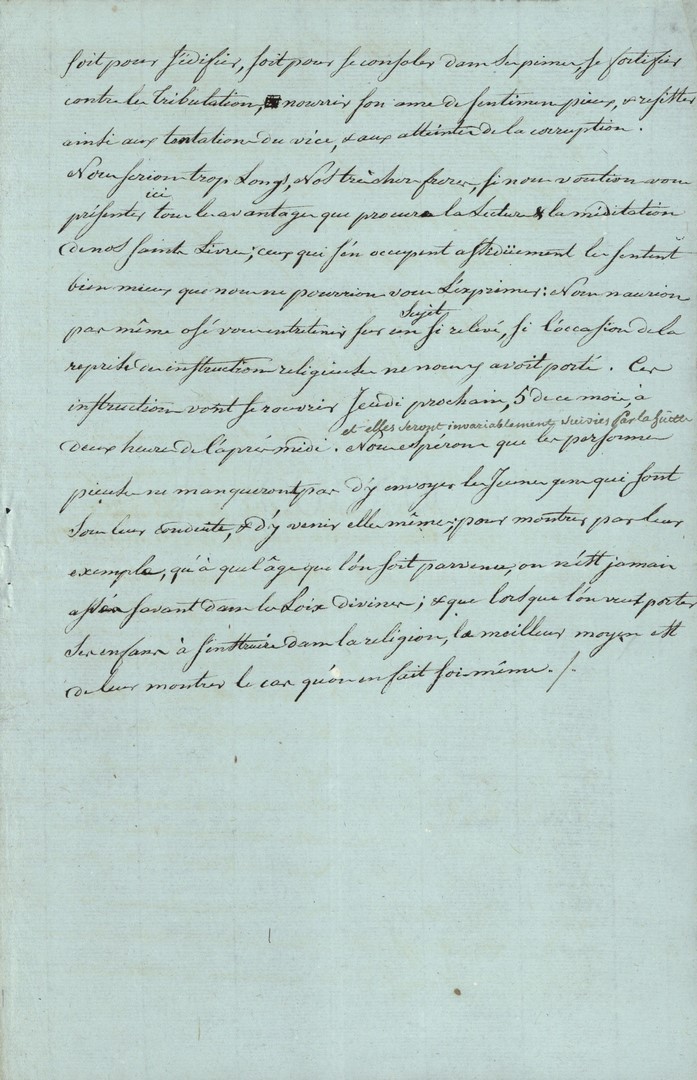 soit pour s'édifier, soit pour se consoler dans ses peines, se fortifier
contre les tribulations, nourrir son ame de sentimens pieux, & resister
ainsi aux tentations du vice, & aux atteintes de la corruption.
Nous serions trop Longs, Nos très chers freres, si nous voulions vous
ici
présenter tous les avantages que procure la Lecture & la méditation
de nos Saints Livres; ceux qui s'en occupent assidüement les sentent
bien mieux que nous ne pourrions vous L'exprimer: Nous n'aurions
Sujet
pas même osé vous entretenir sur un si relevé, si l'occasion de la
reprise des instructions religieuses ne nous y avoit porté. Ces
instructions vont se rouvrir Jeudi prochain, 5 de ce mois, à
et elles seront invariablement suivies par la suitte
deux heures de l'après midi. Nous espérons que les personnes
pieuses ne manqueront pas d'y envoyer les Jeunes gens qui sont
sous leur conduite, & d'y venir elles mêmes, pour montrer par leur
exemple, qu'à quel âge que l'on soit parvenu, on n'est jamais
assés savant dans les Loix divines; & que lorsque l'on veut porter
ses enfans à s'instruire dans la religion, le meilleur moyen est
de leur montrer le cas qu'on en fait soi-même. /.